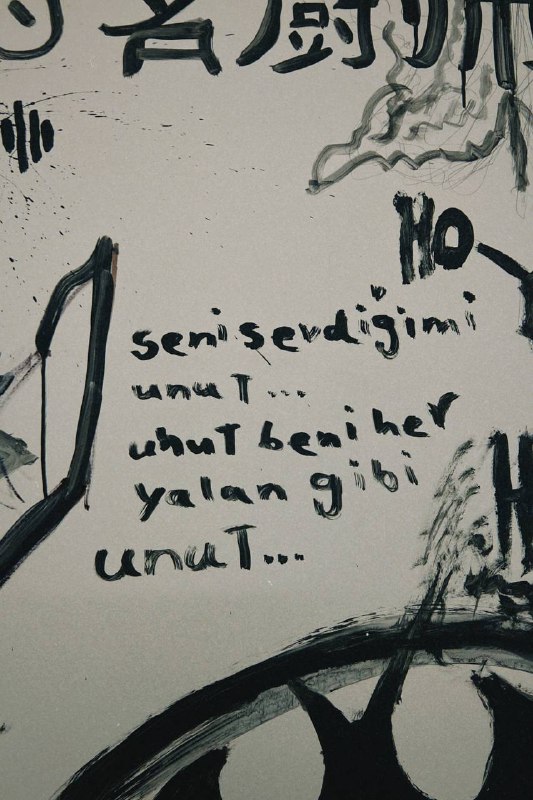 名厨
HO
seni sevdiğimi
unuT...
unuT beni her
yalan gibi
unuT...
H